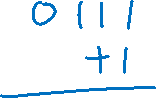 0111
+1